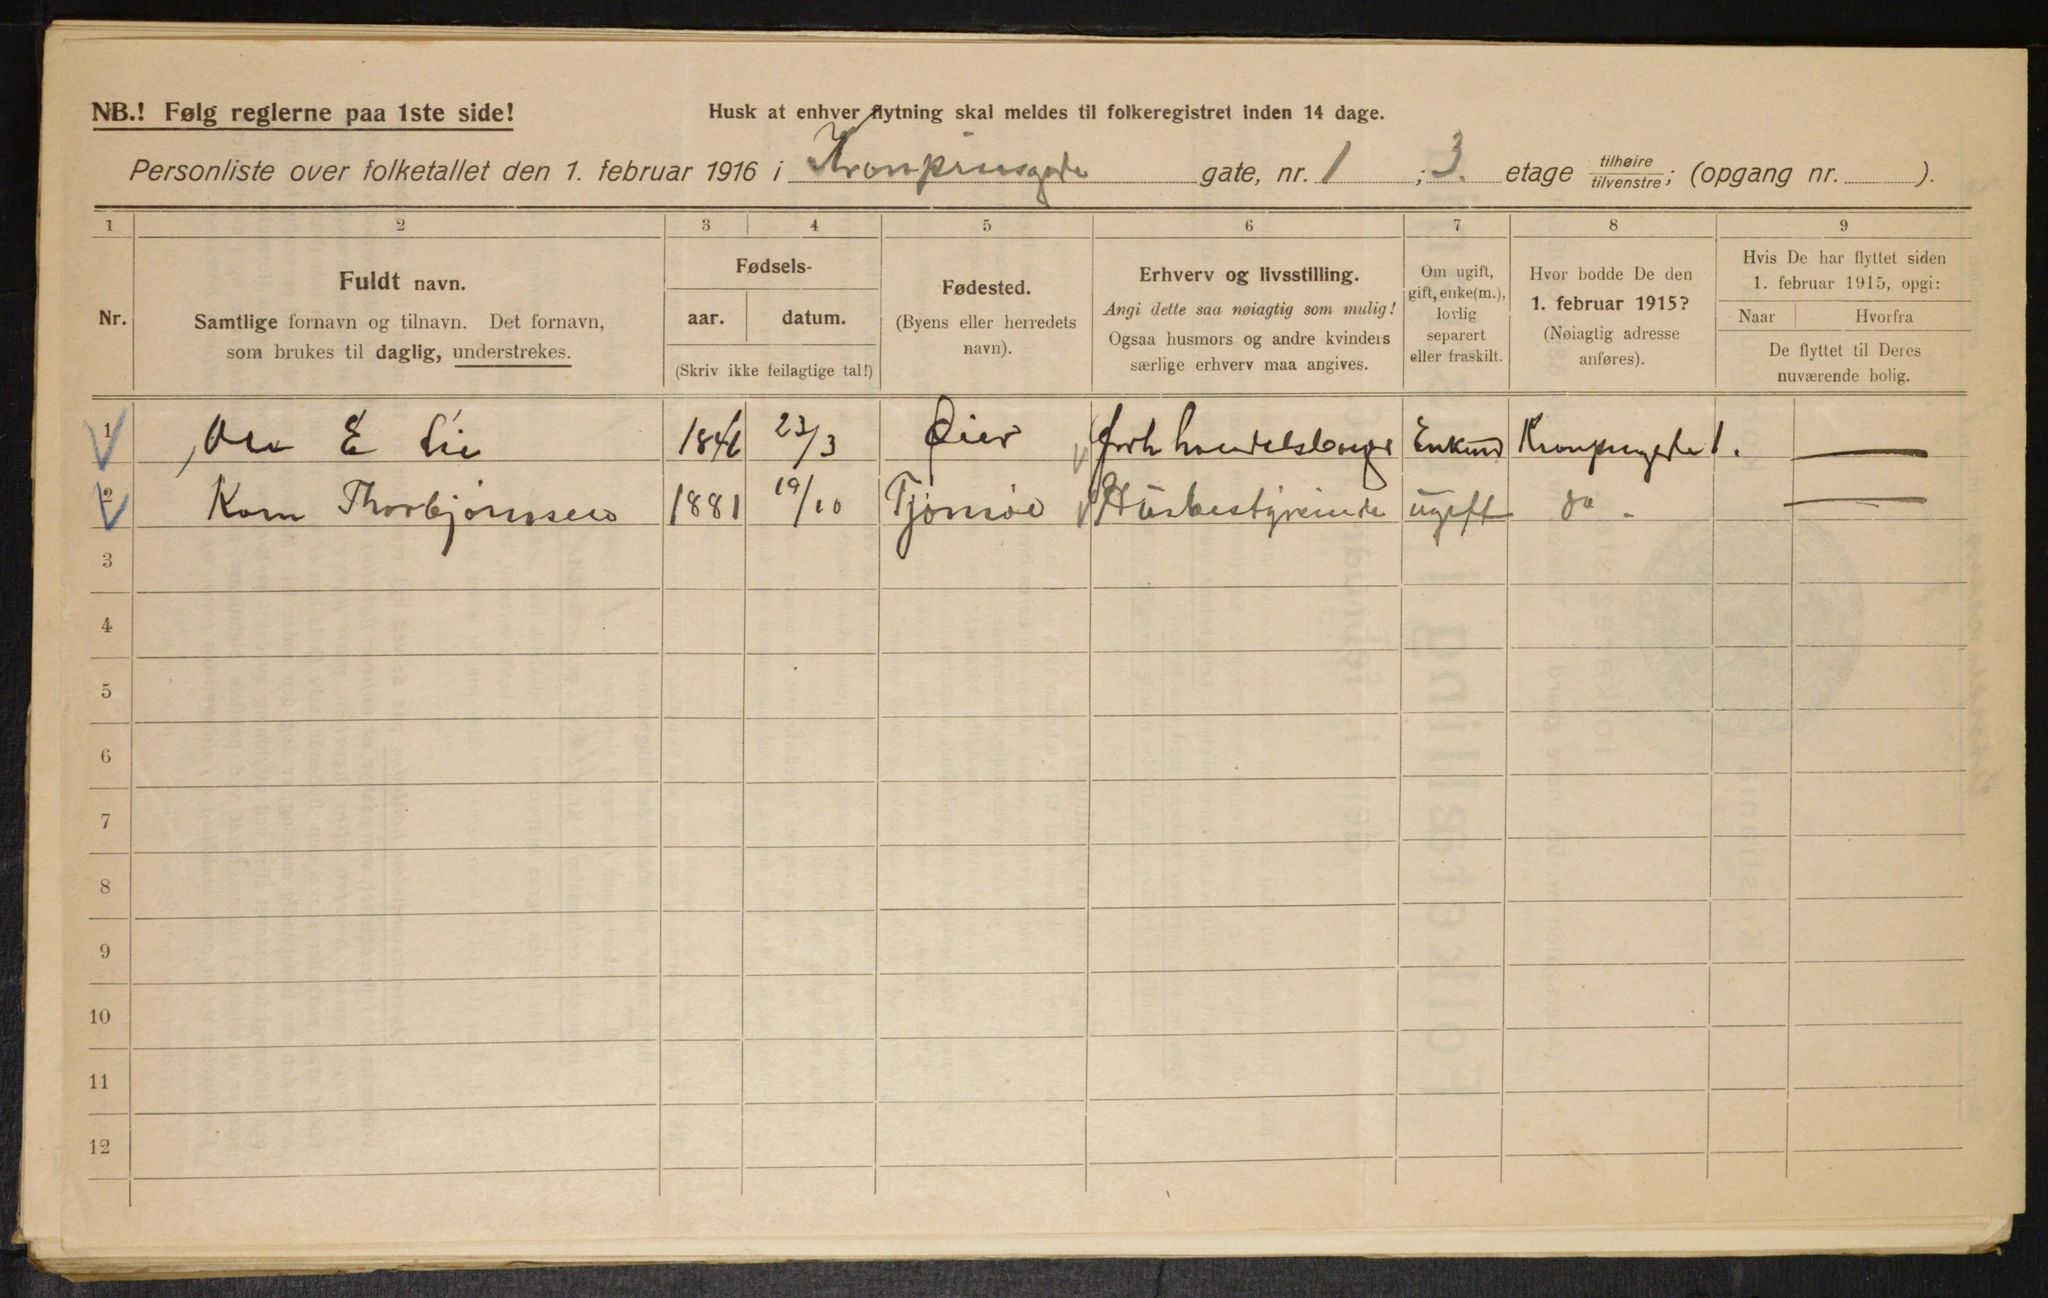 NB.! Følg reglerne paa 1ste side!
Husk at enhver flytning skal meldes til folkeregistret inden 14 dage.
Personliste over folketallet den 1. februar 1916 i Kronprinsgate gate, nr. 1 ; 3. etage tilhøire/tilvenstre; (opgang nr. ).
1 2 3 4 5 6 7 8 9
Nr.
Fuldt navn.
Samtlige fornavn og tilnavn. Det fornavn,
som brukes til daglig, understrekes.
Fødsels-
aar. datum.
(Skriv ikke feilagtige tal!)
Fødested.
(Byens eller herredets
navn).
Erhverv og livsstilling.
Angi dette saa nøiagtig som mulig!
Ogsaa husmors og andre kvinders
særlige erhverv maa angives.
Om ugift,
gift, enke(m.),
lovlig
separert
eller fraskilt.
Hvor bodde De den
1. februar 1915?
(Nøiagtig adresse
anføres).
Hvis De har flyttet siden
1. februar 1915, opgi:
Naar Hvorfra
De flyttet til Deres
nuværende bolig.
1 E Lie 23/3 Øier Kronprinsgate 1. —
2 Thorbjørnsen 1881 19/10 Tjømøe Husbestyrerinde ugift do. —
3
4
5
6
7
8
9
10
11
12